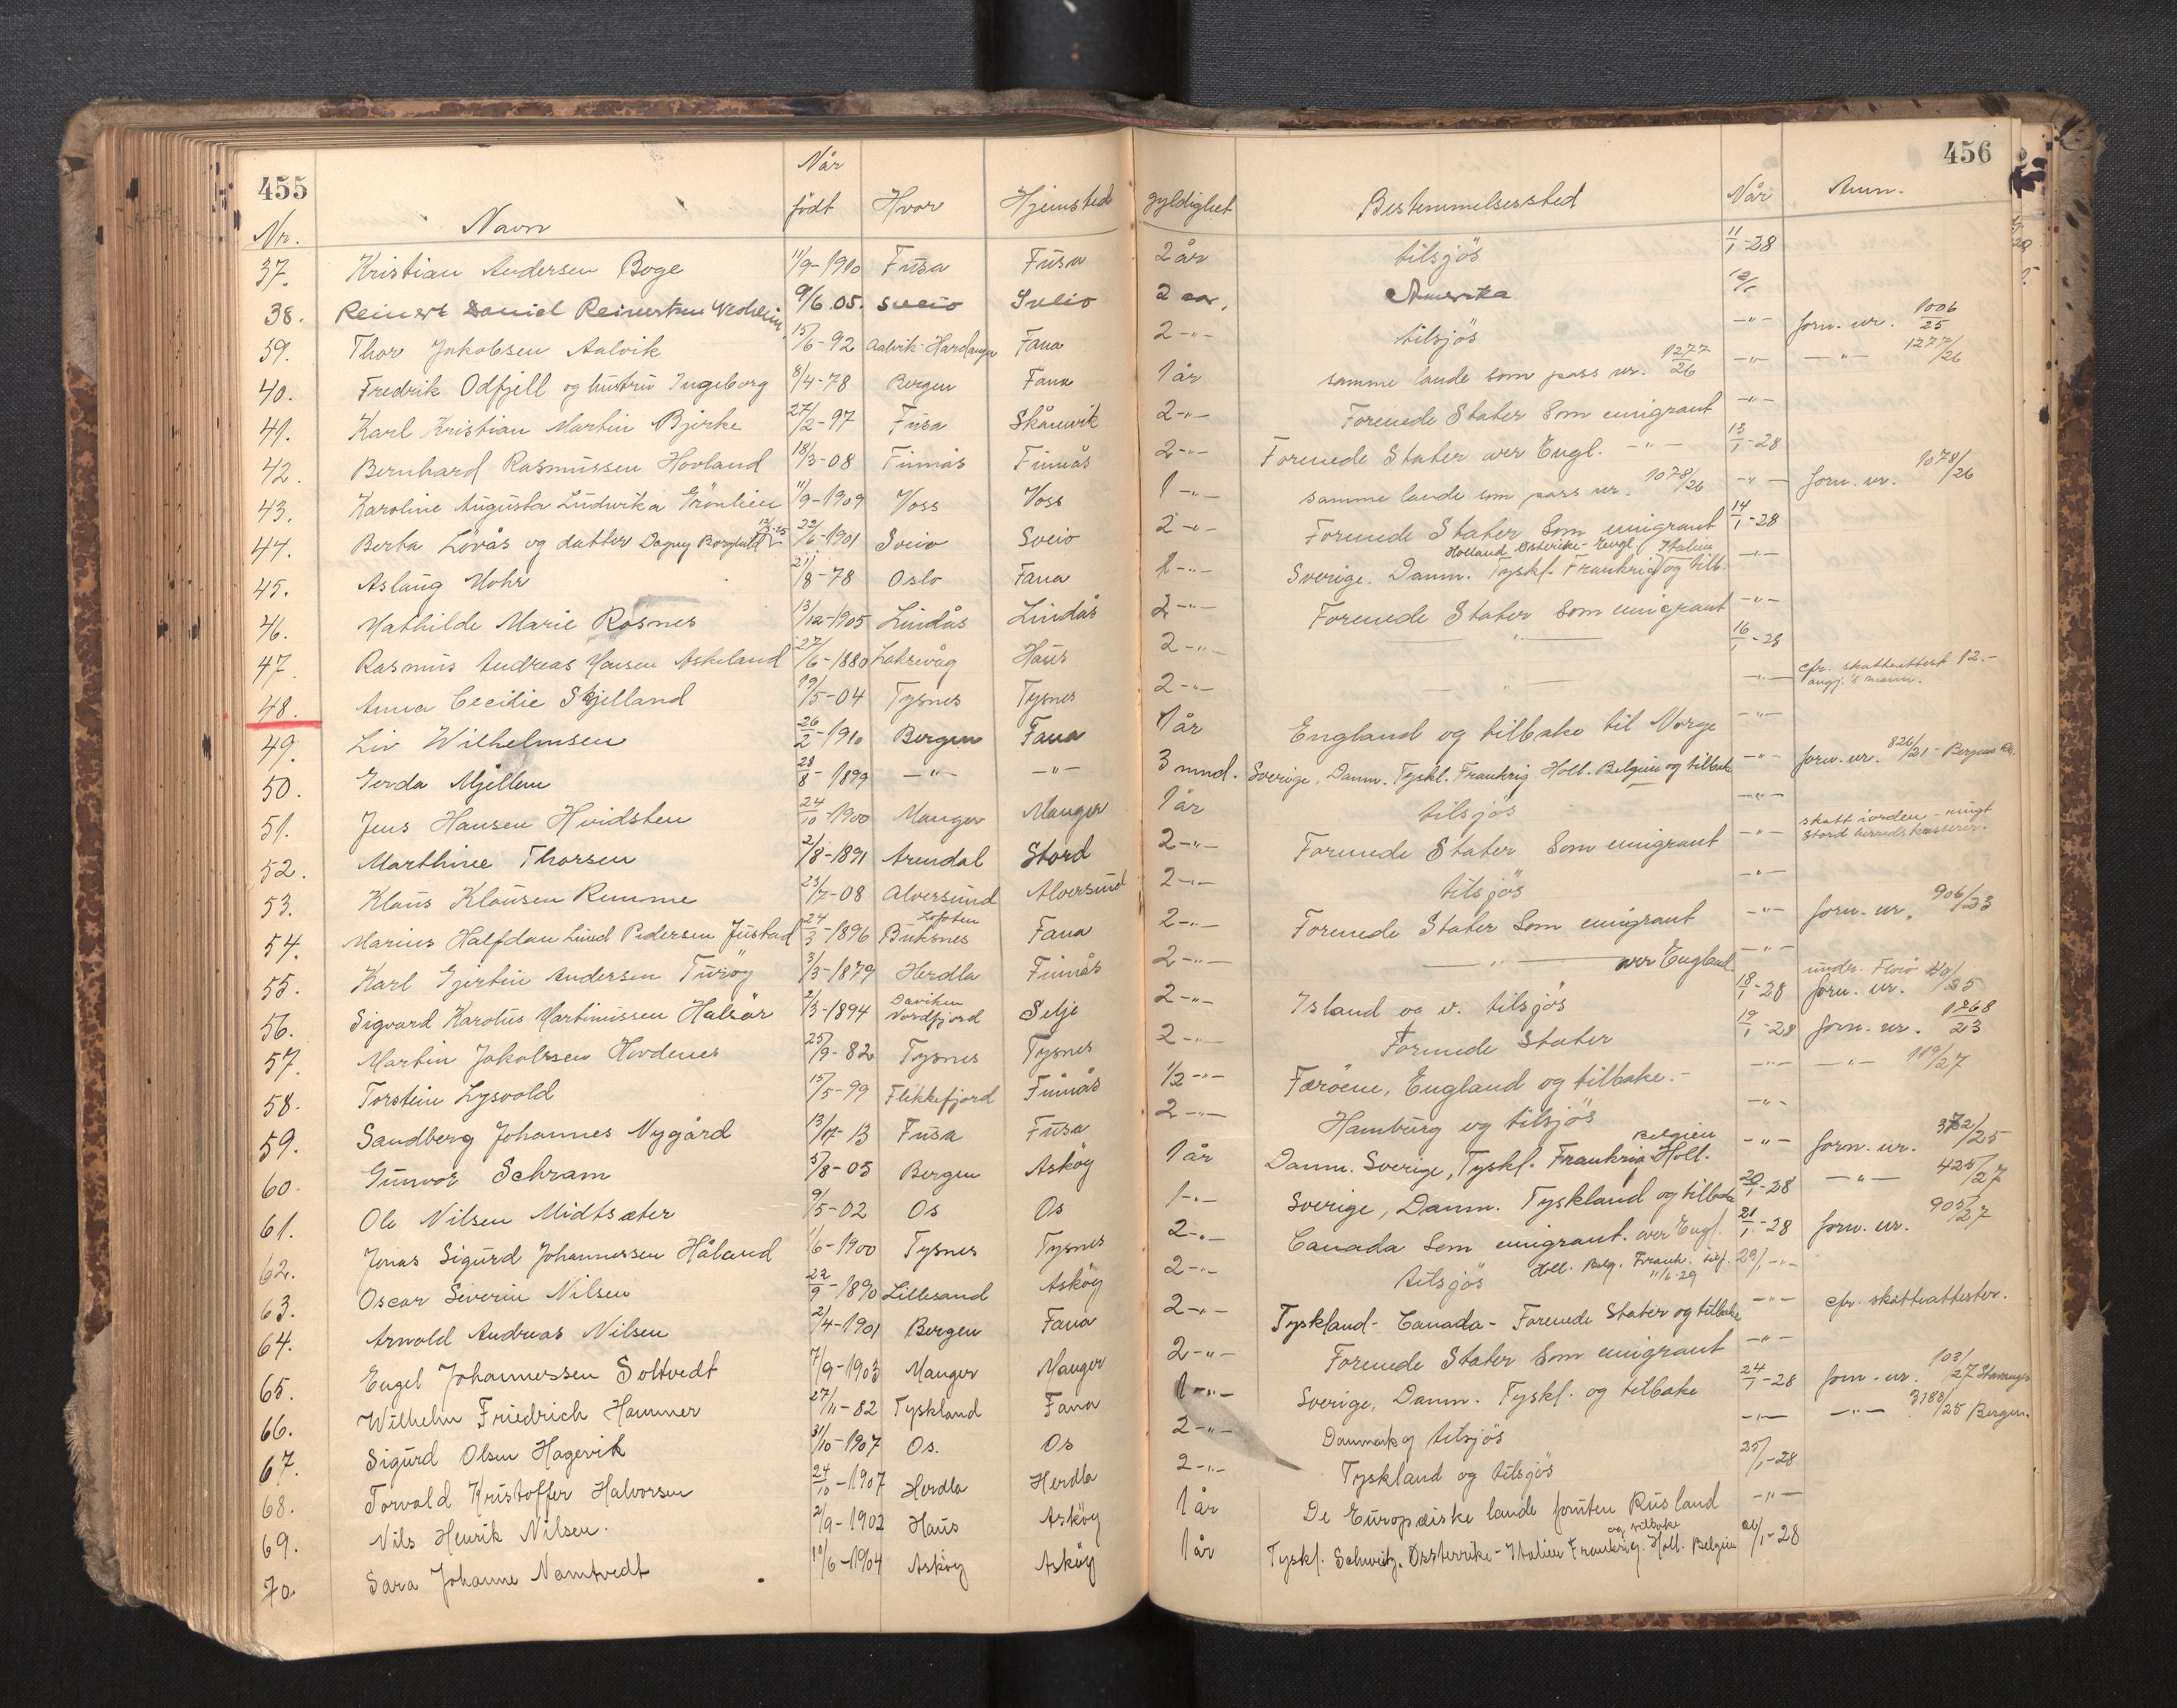 455
456
Nr. Navn Når født Hvor Hjemsted gyldighet Bestemmelsessted Når Anm.
37. Kristian Andersen Boge 11/9-1910 Fusa Fusa 2 år tilsjøs 11/1-28
38. Reinert Daniel Reinertsen 9/6.05. Sveio Sveio 2 aar. Amerika 12/1
39. Thor Jakobsen Aalvik 15/6-92 Aalvik-Hardanger Fana 2-"- tilsjøs -"- forn. nr. 1006/25
40. Fredrik Odfjell og hustru Ingeborg 8/4-78 Bergen Fana 1 år samme lande som pass nr. 1277/26 -"- -"- 1277/26
41. Karl Kristian Martin Bjerke 27/2-97 Fusa Skånevik 2-"- Forenede Stater som emigrant -"-
42. Bernhard Rasmussen Hovland 18/3-08 Finnås Finnås 2-"- Forenede Stater over Engl. -"- 13/1-28
43. Karoline Augusta Ludvika Grønlien 11/9-1909 Voss Voss 1-"- samme lande som pass nr. 1078/26 -"- forn. nr. 1078/26
44. Berta Lovås og datter Dagny Borghild 22/6-1901 Sveio Sveio 2-"- Forenede Stater som emigrant 14/1-28
45. Aslaug Mohr 21/8-78 Oslo Fana 1-"- Sverige. Danm. Tyskl. Frankrig og tilb. Holland Østerike-Engl. Italien -"-
46. Mathilde Marie Rosnes 13/12-1905 Lindås Lindås 2-"- Forenede Stater som emigrant -"-
47. Rasmus Andreas Hansen Askeland 27/6-1880 Haus 2-"- -"- 16/1-28
48. Anna Cecilie Skjelland 19/5-04 Tysnes Tysnes 2-"- -"- -"- cfr. skatteattest 12.- angj.'s mann.
49. Liv Wilhelmsen 26/2-1910 Bergen Fana 1 år England og tilbake til Norge -"-
50. Gerda Mjellem 28/8-1899 -"- -"- 3 mnd. Sverige, Danm. Tyskl. Frankrig. Holl. Belgien og tilbake -"- forn. nr. 826/21 - Bergens
51. Jens Hansen Hvidsten 24/10-1900 Manger Manger 1 år tilsjøs -"-
52. Marthine Thorsen 2/8-1891 Arendal Stord 2-"- Forenede Stater som emigrant -"- skatt iorden - Stord herredskasserer.
53. Klaus Klausen Remme 23/7-08 Alversund Alversund 2-"- tilsjøs -"-
54. Marius Halfdan Lund Pedersen Justad 24/3-1896 Buksnes Lofoten Fana 2-"- Forenede Stater som emigrant -"- forn. nr. 906/23
55. Karl Gjertin Andersen Turøy 3/3-1879 Herdla Finnås 2-"- -"- over England. -"-
56. Sigvard Karolus Martinussen Halsør 2/3-1894 Daviken Nordfjord Selje 2-"- Island og v. tilsjøs 18/1-28 undr. Florø forn. nr. 40/25
57. Martin Jakobsen Hovdenes 25/9-82 Tysnes Tysnes 2-"- Forenede Stater 19/1-28 forn. nr. 1268/23
58. Torstein Lysvold 15/5-99 Flekkefjord Finnås 1/2-"- Færøene, England og tilbake.- -"- -"- 119/27
59. Sandberg Johannes Nygård 13/ -13 Fusa Fusa 2-"- Hamburg og tilsjøs -"-
60. Gunvor Schram 5/8-05 Bergen Askøy 1 år Danm. Sverige, Tyskl. Frankrig Holl. Belgien -"- forn. nr. 3732/25
61. Ole Nilsen Midtsæter 9/5-02 Os Os 1-"- Sverige, Danm. Tyskland og tilbake 20/1-28 -"- 425/27
62. Jonas Sigurd Johannessen Håland 1/6-1900 Tysnes Tysnes 2-"- Canada som emigrant. over Engl. 21/1-28 forn. nr. 905/27
63. Oscar Severin Nilsen 22/9-1890 Lillesand Askøy 2-"- tilsjøs Holl. Belg. Frank. 11/6-29 23/1-"-
64. Arnold Andreas Nilsen 2/4-1901 Bergen Fana 2-"- Tyskland- Canada- Forenede Stater og tilbake -"- cfr. skatteattester.
65. Engel Johannessen Soltvedt 7/9-1903 Manger Manger 2-"- Forenede Stater som emigrant -"-
66. Wilhelm Friedrich Hammer 27/11-82 Tyskland Fana 1-"- Sverige, Danm. Tyskl. og tilbake 24/1-28 forn. nr. 103/27 Stavanger
67. Sigurd Olsen Hagevik 31/10-1907 Os. Os 2-"- Danmark og tilsjøs -"- -"- 3188/25 Bergen.
68. Torvald Kristoffer Halvorsen 24/10-1907 Herdla Herdla 2-"- Tyskland og tilsjøs 25/1-28
69. Nils Henrik Nilsen. 2/9-1902 Haus Askøy 1 år De Europæiske lande foruten Rusland -"-
70. Sara Johanne Namtvedt 10/6-1904 Askøy Askøy 1 år Tyskl. Schweitz. Østerrike-Italien Frankrig. Holl. Belgien og tilbake 26/1-28